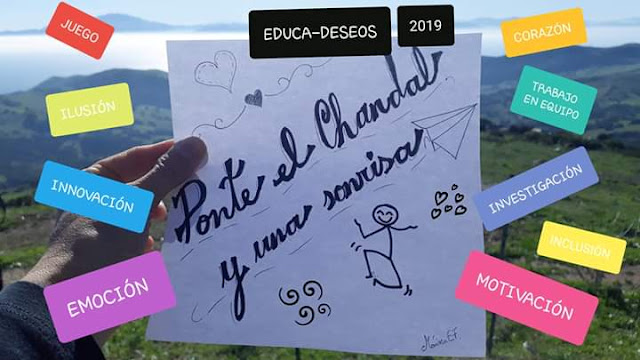 EDUCA-DESEOS
2019
JUEGO
CORAZÓN
ILUSIÓN
TRABAJO
EN EQUIPO
INNOVACIÓN
INVESTIGACIÓN
INCLUSIÓN
EMOCIÓN
MOTIVACIÓN
Ponte el Chandal
y una sonrisa